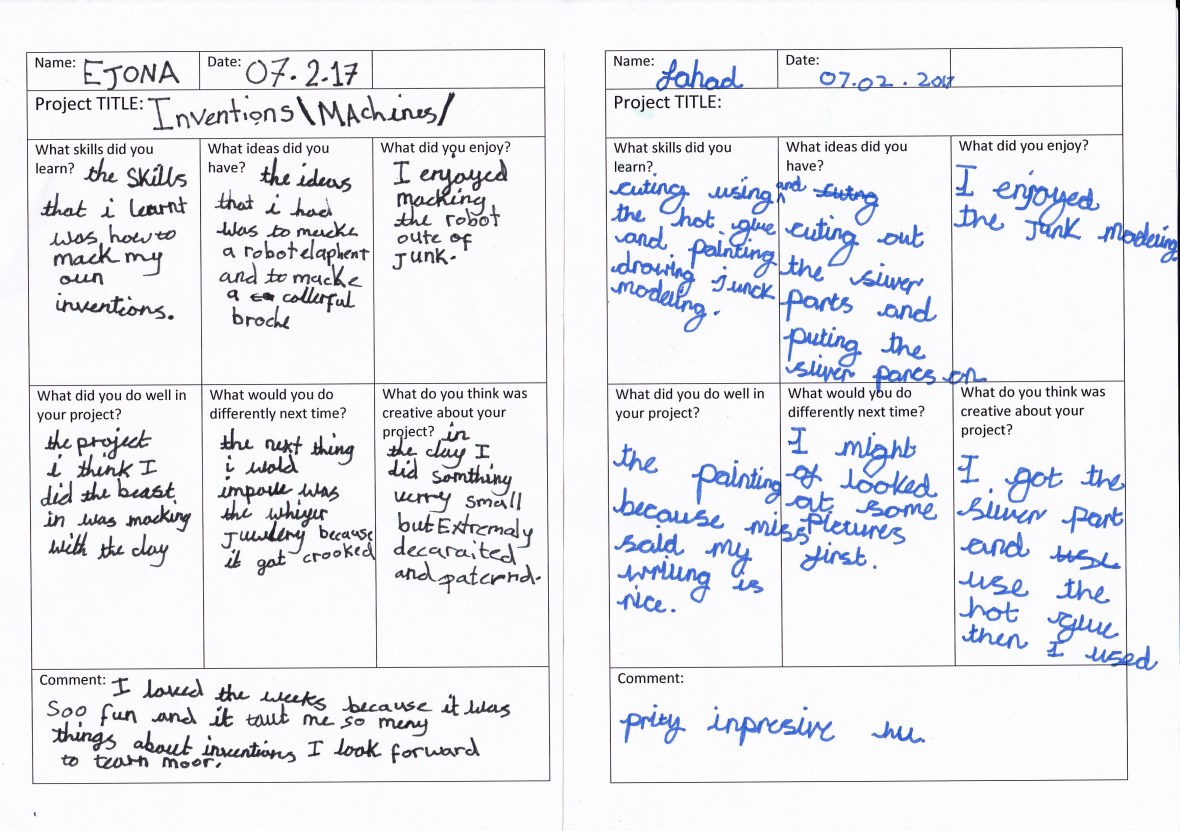 Name: EJONA
Date: 07.2.17
Project TITLE: Inventions\MAchines/
What skills did you
learn? the skills
that i learnt
was how to
mack my
oun
inventions.
What ideas did you
have? the ideas
that i had
was to macke
a robot elaphent
and to macke
a collerful
broche
What did you enjoy?
I enjoyed
macking
the robot
oute of
junk.
What did you do well in
your project?
the project
i think I
did the beast
in was macking
with the clay
What would you do
differently next time?
the next thing
i wold
impove was
the whiyer
Juwlery because
it got crooked
What do you think was
creative about your
project? in
the clay I
did somthing
verry small
but Extremaly
decaraited
and paternd.
Comment: I loved the weeks because it was
Soo fun and it taut me so meny
things about inventions I look forward
to learn moor.
Name: Fahad
Date: 07.02.2017
Project TITLE:
What skills did you
learn?
cuting using
the hot glue
and painting
drowing junck
modeling.
What ideas did you
have?
and cutng
cuting out
the siwer
parts and
puting the
siwer parts on
What did you enjoy?
I enjoyed
the junk modeling
What did you do well in
your project?
the painting
because miss
said my
writing is
nice.
What would you do
differently next time?
I might
of looked
at some
pictures
first.
What do you think was
creative about your
project?
I got the
siwer part
and use
use the
hot glue
then I used
Comment:
prity inpresive hu.